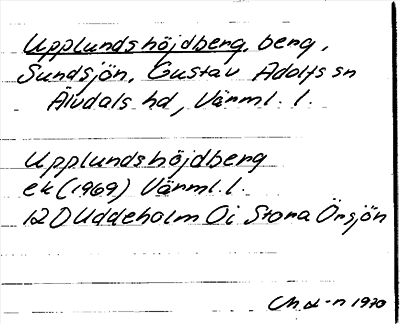 Upplundshöjdberg, berg,
Sundsjön, Gustav Adolfs sn
Älvdals hd, Värml. l.
Upplundshöjdberg
ek (1969) Värml. l.
12 D Uddeholm 0i Stora Örsjön
1970